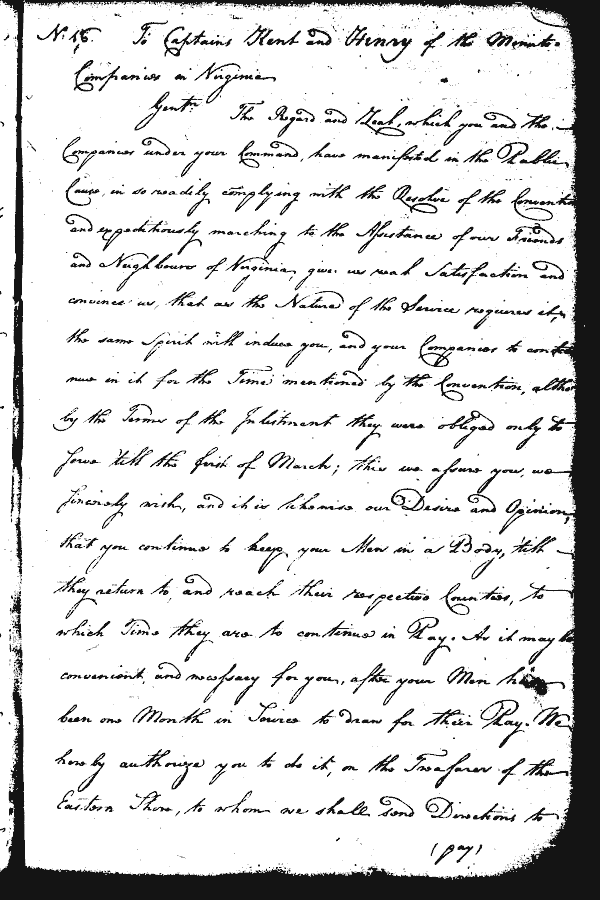 No. 16. To Captains Kent and Henry of the Minute
Companies in Virginia
Gentn. The Regard and Zeal, which you and the
Companies under your Command, have manifested in the Public
Cause, in so readily complying with the Resolve of the Convention
and expeditiously marching to the Assistance of our Friends
and Neighbours of Virginia, give us real Satisfaction and
convinces us, that as the Nature of the Service requires it,
the same Spirit will induce you, and your Companies to conti
nue in it for the Time mentioned by the Convention, altho
by the Terms of the Inlistment they were obliged only to
serve till the first of March; this we assure you, we
sincerely wish, and it is likewise our Desire and Opinion,
that you continue to keep your Men in a Body, till
they return to, and reach their respective Counties, to
which Time they are to continue in Pay. As it may be
convenient, and necessary for you, after your Men have
been one Month in Service to draw for their Pay. We
hereby authorize you to do it, on the Treasurer of the
Eastern Shore, to whom we shall send Directions to
(pay)